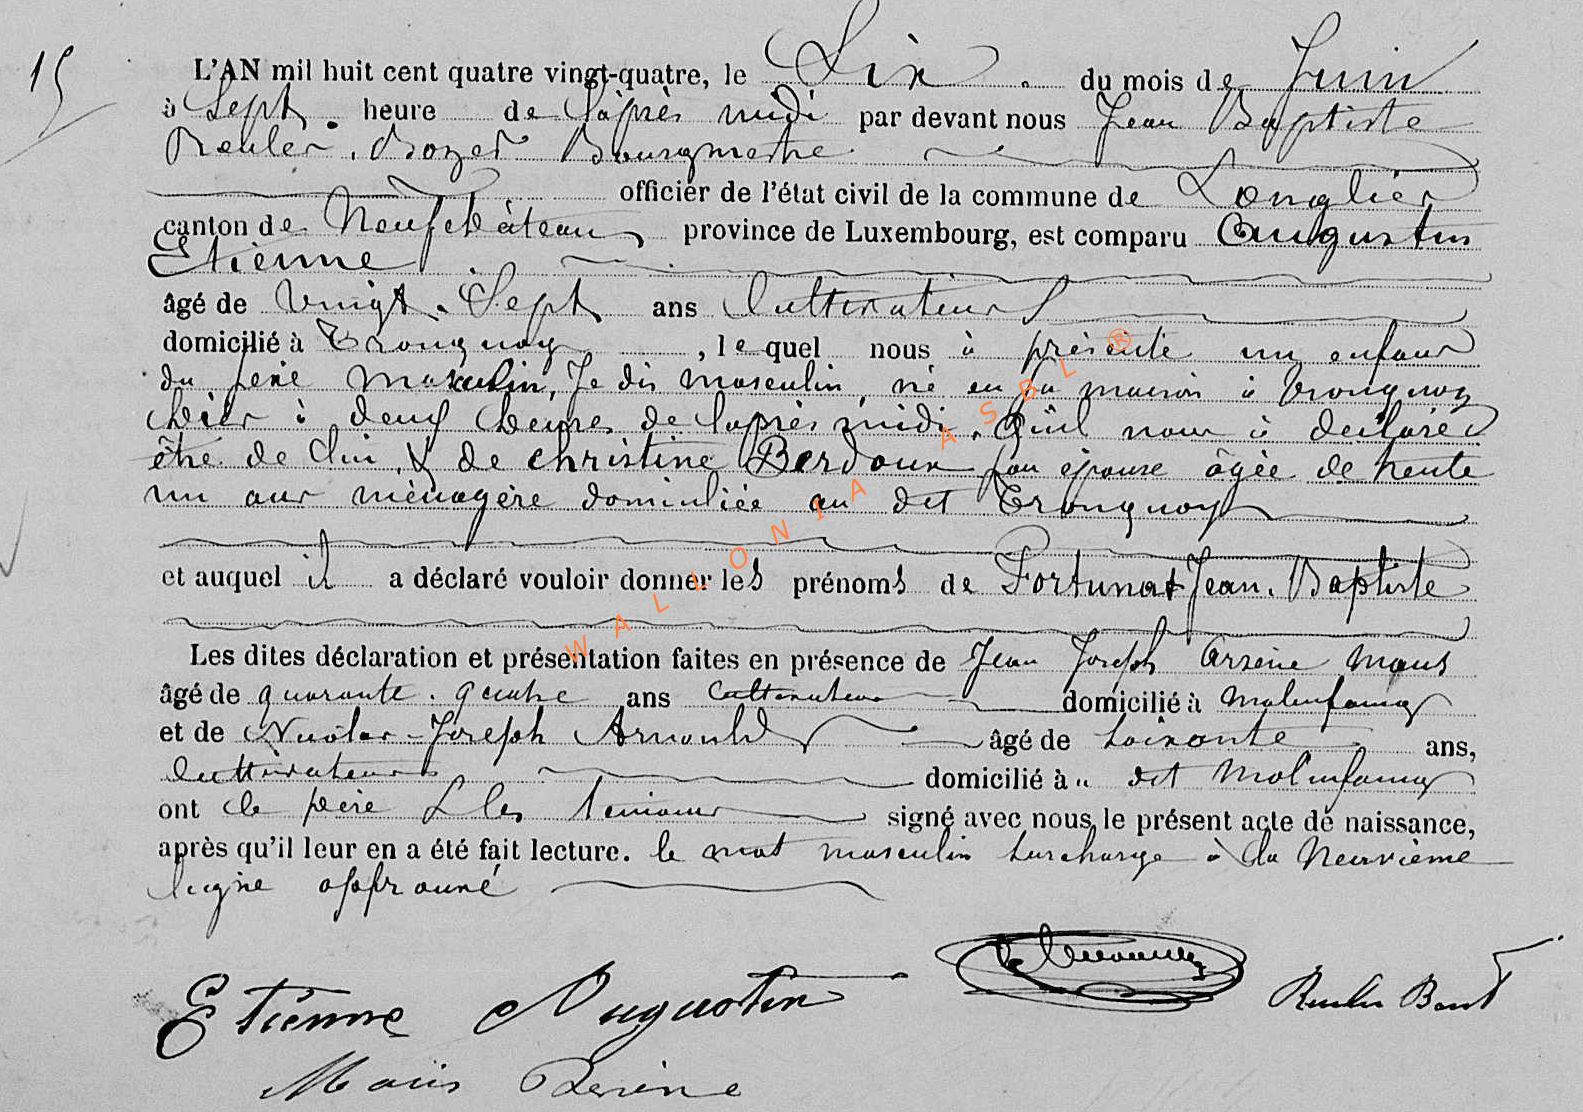 15
L'AN mil huit cent quatre vingt-quatre, le Six du mois de Juin
à Sept heure de l'après midi par devant nous Jean Baptiste
Reuler Bourgmestre
officier de l'état civil de la commune de Longlier
canton de Neufchâteau, province de Luxembourg, est comparu Augustin
Etienne
âgé de Vingt-Sept ans Cultivateur
domicilié à Tronquoy, lequel nous à présenté un enfant
du sexe masculin, Je dis masculin, né en sa maison à Tronquoy
hier à deux heures de l'après midi, Qu'il nous à déclaré
être de lui, & de christine Berdoux son épouse âgée de trente
un ans ménagère domiciliée au dit Tronquoy
et auquel il a déclaré vouloir donner les prénoms de Fortunat Jean-Baptiste
Les dites déclaration et présentation faites en présence de Jean Joseph Arsène Maus
âgé de quarante-quatre ans Cultivateur domicilié à Molinfaing
et de Nicolas-Joseph Arnould âgé de soixante ans,
Cultivateur domicilié à dit Molinfaing
ont le père & les témoins signé avec nous le présent acte de naissance,
après qu'il leur en a été fait lecture. le mot masculin surchargé à la Neuvième
ligne approuvé
Etienne Augustin
Reuler
Maus
WALLONIA ASBL ®